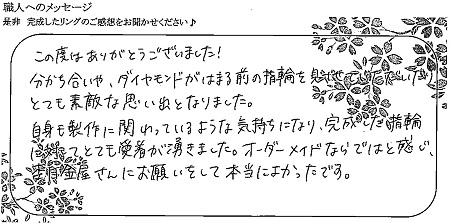 職人へのメッセージ
是非 完成したリングのご感想をお聞かせください♪
この度はありがとうございました!
分かち合いや、ダイヤモンドがはまる前の指輪を見せていただいたり
とても素敵な思い出となりました。
自身も製作に関わっているような気持ちになり、完成した指輪
に対してとても愛着が湧きました。オーダーメイドならではと感じ、
金屋さんにお願いをして本当によかったです。